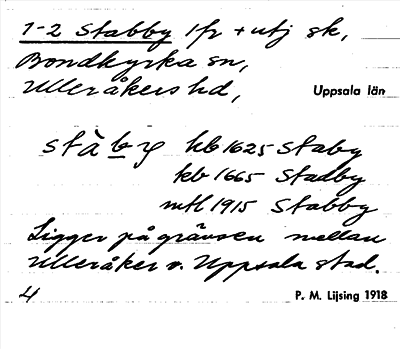 1-2 Stabby 1fr + utj sk,
Bondkyrka sn,
Ulleråkers hd, Uppsala län
stàby hb 1625 Staby
kb 1665 Stadby
mtl 1915 Stabby
Ligger på gränsen mellan
Ulleråker o. Uppsala stad.
4 P. M. Lijsing 1918